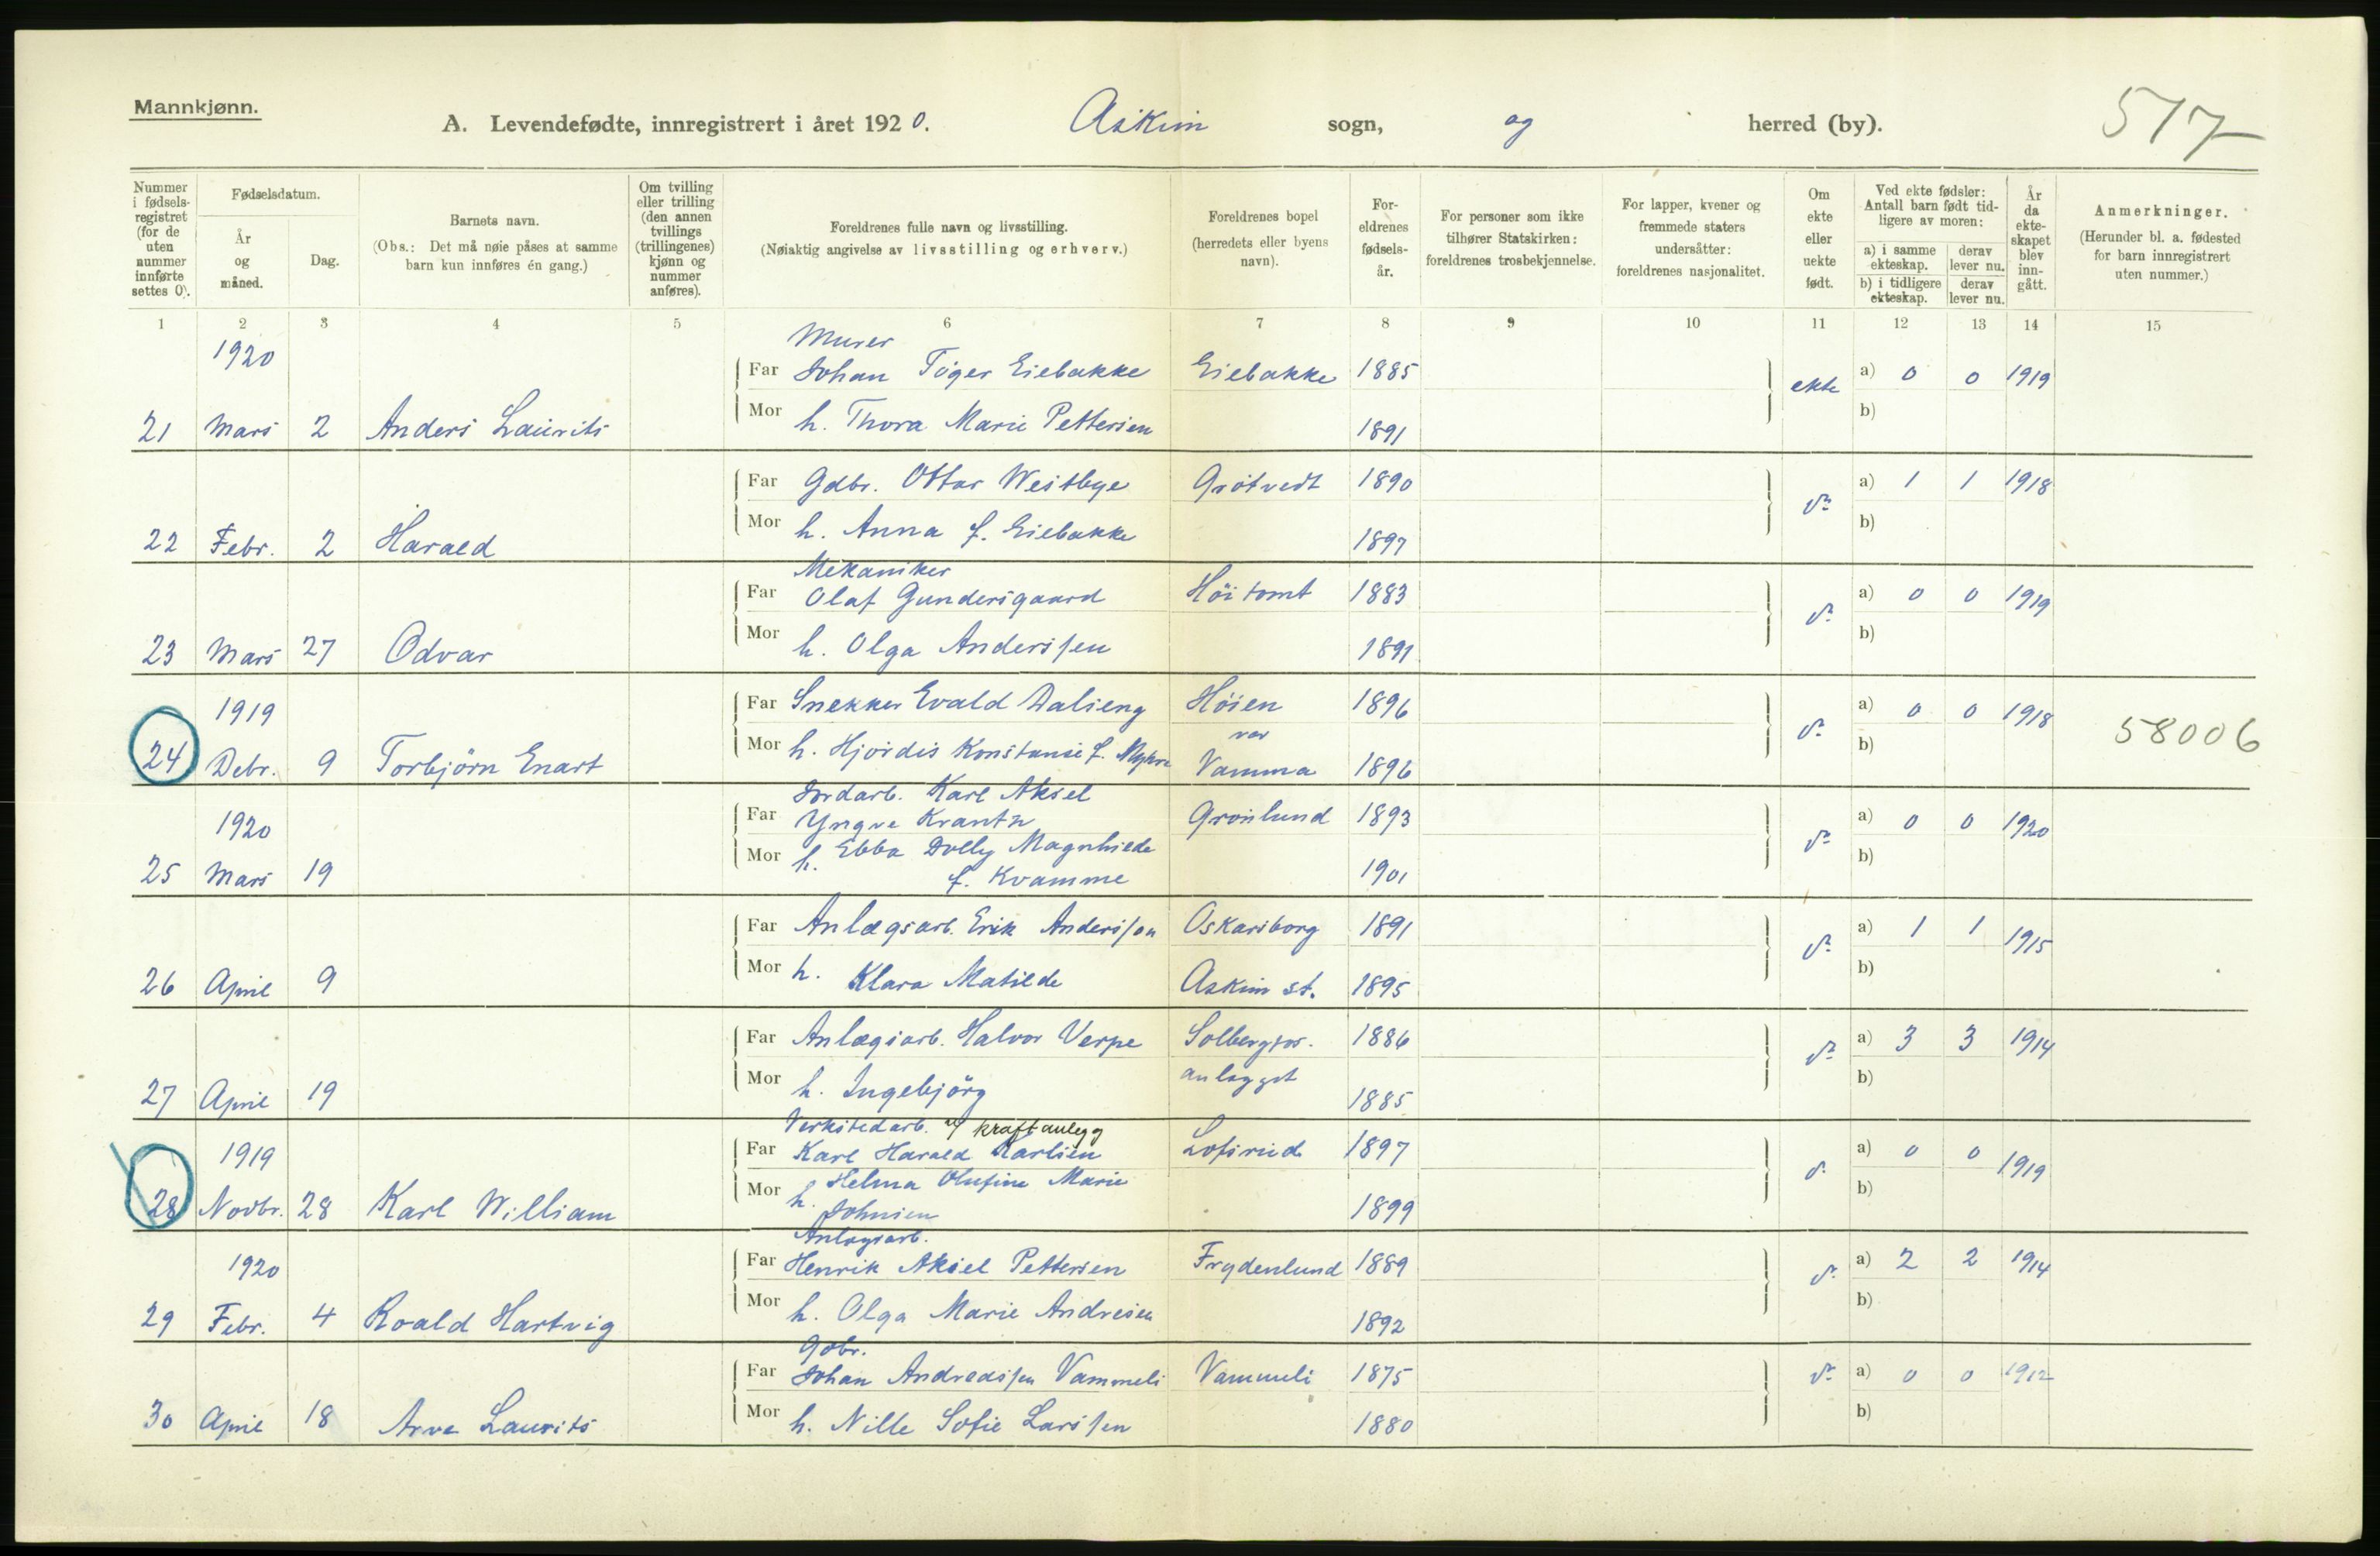 Mannkjønn.
A. Levendefødte, innregistrert i året 1920. Askim sogn, og herred (by). 517
Nummer i fødselsregistret (for de uten nummer innførte settes 0).
Fødselsdatum.
År og måned.
Dag.
Barnets navn.
(Obs.: Det må nøie påses at samme barn kun innføres én gang.)
Om tvilling eller trilling (den annen tvillings (trillingenes) kjønn og nummer anføres).
Foreldrenes fulle navn og livsstilling.
(Nøiaktig angivelse av livsstilling og erhverv.)
Foreldrenes bopel (herredets eller byens navn).
Foreldrenes fødselsår.
For personer som ikke tilhører Statskirken: foreldrenes trosbekjennelse.
For lapper, kvener og fremmede staters undersåtter: foreldrenes nasjonalitet.
Om ekte eller uekte født.
Ved ekte fødsler: Antall barn født tidligere av moren:
a) i samme ekteskap. derav lever nu.
b) i tidligere ekteskap. derav lever nu.
År da ekteskapet blev inngått.
Anmerkninger.
(Herunder bl. a. fødested for barn innregistrert uten nummer.)
1 2 3 4 5 6 7 8 9 10 11 12 13 14 15
1920 Murer
Far Johan Tøger Eiebakke Eiebakke 1885 ekte a) 0 0 1919
21 Mars 2 Anders Laurits Mor h. Thora Marie Pettersen 1891 b)
Far Gdbr. Ottar Westbye Grøtvedt 1890 do a) 1 1 1918
22 Febr. 2 Harald Mor h. Anna f. Eiebakke 1897 b)
Mekaniker
Far Olaf Gundersgaard Höitomt 1883 do a) 0 0 1919
23 Mars 27 Odvar Mor h. Olga Anderssen 1891 b)
1919 Far Snekker Evald Dalseng Höien 1896 do a) 0 0 1918 58006
24 Debr. 9 Torbjörn Enart Mor h. Hjördis Konstanse f. Myhre Vamma 1896 b)
Jordarb. Karl Aksel
1920 Far Yngve Krantz Grönlund 1893 do a) 0 0 1920
25 Mars 19 Mor h. Ebba Dolly Magnhilde
f. Kvamme 1901 b)
Far Anlægsarb. Erik Andersson Oskarsborg 1891 do a) 1 1 1915
26 April 9 Mor h. Klara Matilde Askim st. 1895 b)
Far Anlægsarb. Halvor Verpe Solbergfos. 1886 do a) 3 3 1914
27 April 19 Mor h. Ingebjörg anlegget 1885 b)
Verkstedarb. v/ kraftanlegg
1919 Far Karl Harald Karlsen Lofsrud 1897 do a) 0 0 1919
28 Novbr. 28 Karl William Mor h. Helma Olufine Marie
Johnsen 1899 b)
Anlegsarb.
1920 Far Henrik Aksel Pettersen Frydenlund 1889 do a) 2 2 1914
29 Febr. 4 Roald Hartvig Mor h. Olga Marie Andresen 1892 b)
Gdbr.
Far Johan Andreassen Vammeli Vammeli 1875 do a) 0 0 1912
30 April 18 Arve Laurits Mor h. Nille Sofie Larssen 1880 b)